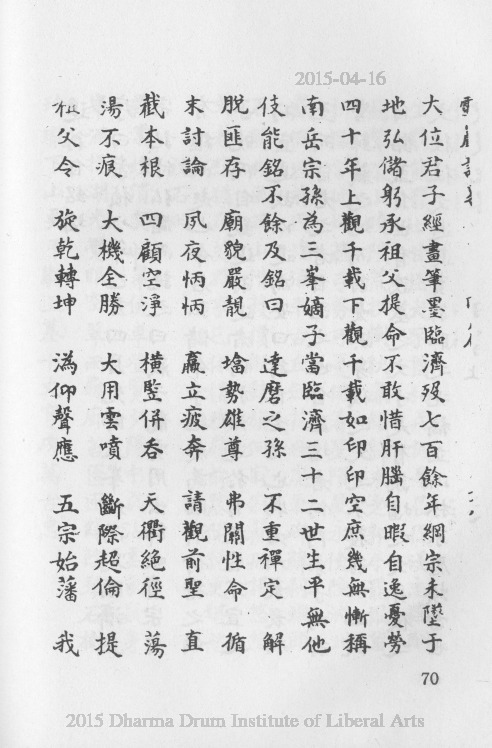 2015-04-16
大位君子經畫筆墨臨濟歿七百餘年綱宗未墜于
地弘儲躬承祖父提命不敢惜肝腦自暇自逸憂勞
四十年上觀千載下觀千載如印印空庶幾無慚稱
南岳宗孫為三峯嫡子當臨濟三十二世生平無他
伎能銘不餘及銘曰 達磨之孫 不重禪定 解
脫匪存 廟貌嚴靚 墖勢雄尊 弗關性命 循
末討論 夙夜炳炳 羸立疲奔 請觀前聖 直
截本根 四顧空淨 橫監併吞 天衢絕徑 蕩
湯不痕 大機全勝 大用雲噴 斷際超倫 提
祖父令 旋乾轉坤 溈仰聲應 五宗始藩 我
70
2015 Dharma Drum Institute of Liberal Arts